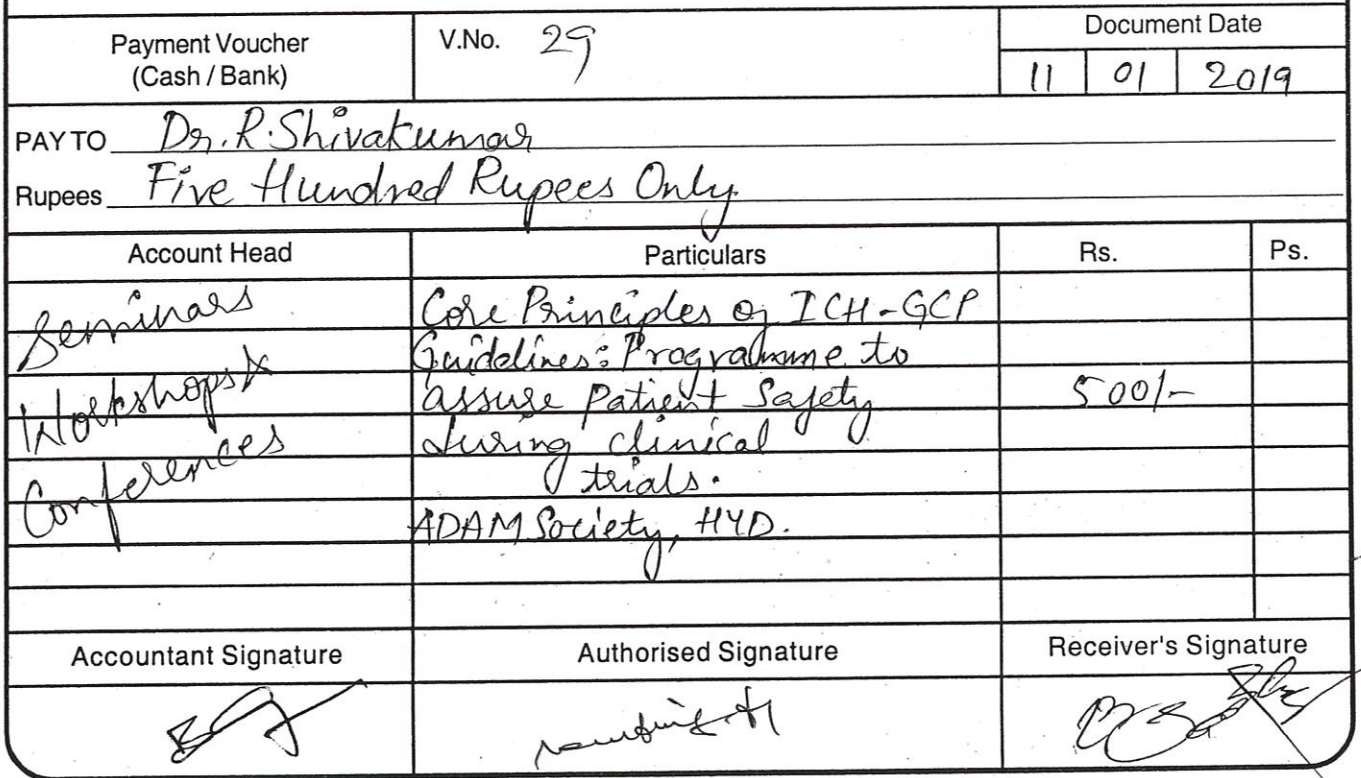 Payment Voucher
(Cash / Bank)
V.No. 29
Document Date
11 01 2019
PAY TO Dr. R. Shivakumar
Rupees Five Hundred Rupees Only
Account Head Particulars Rs. Ps.
Seminars
Workshops &
Conferences
Core Principles of ICH-GCP
Guidelines: Programme to
assure patient Safety
during clinical
trials.
ADAM Society, HYD.
500/-
Accountant Signature Authorised Signature Receiver's Signature